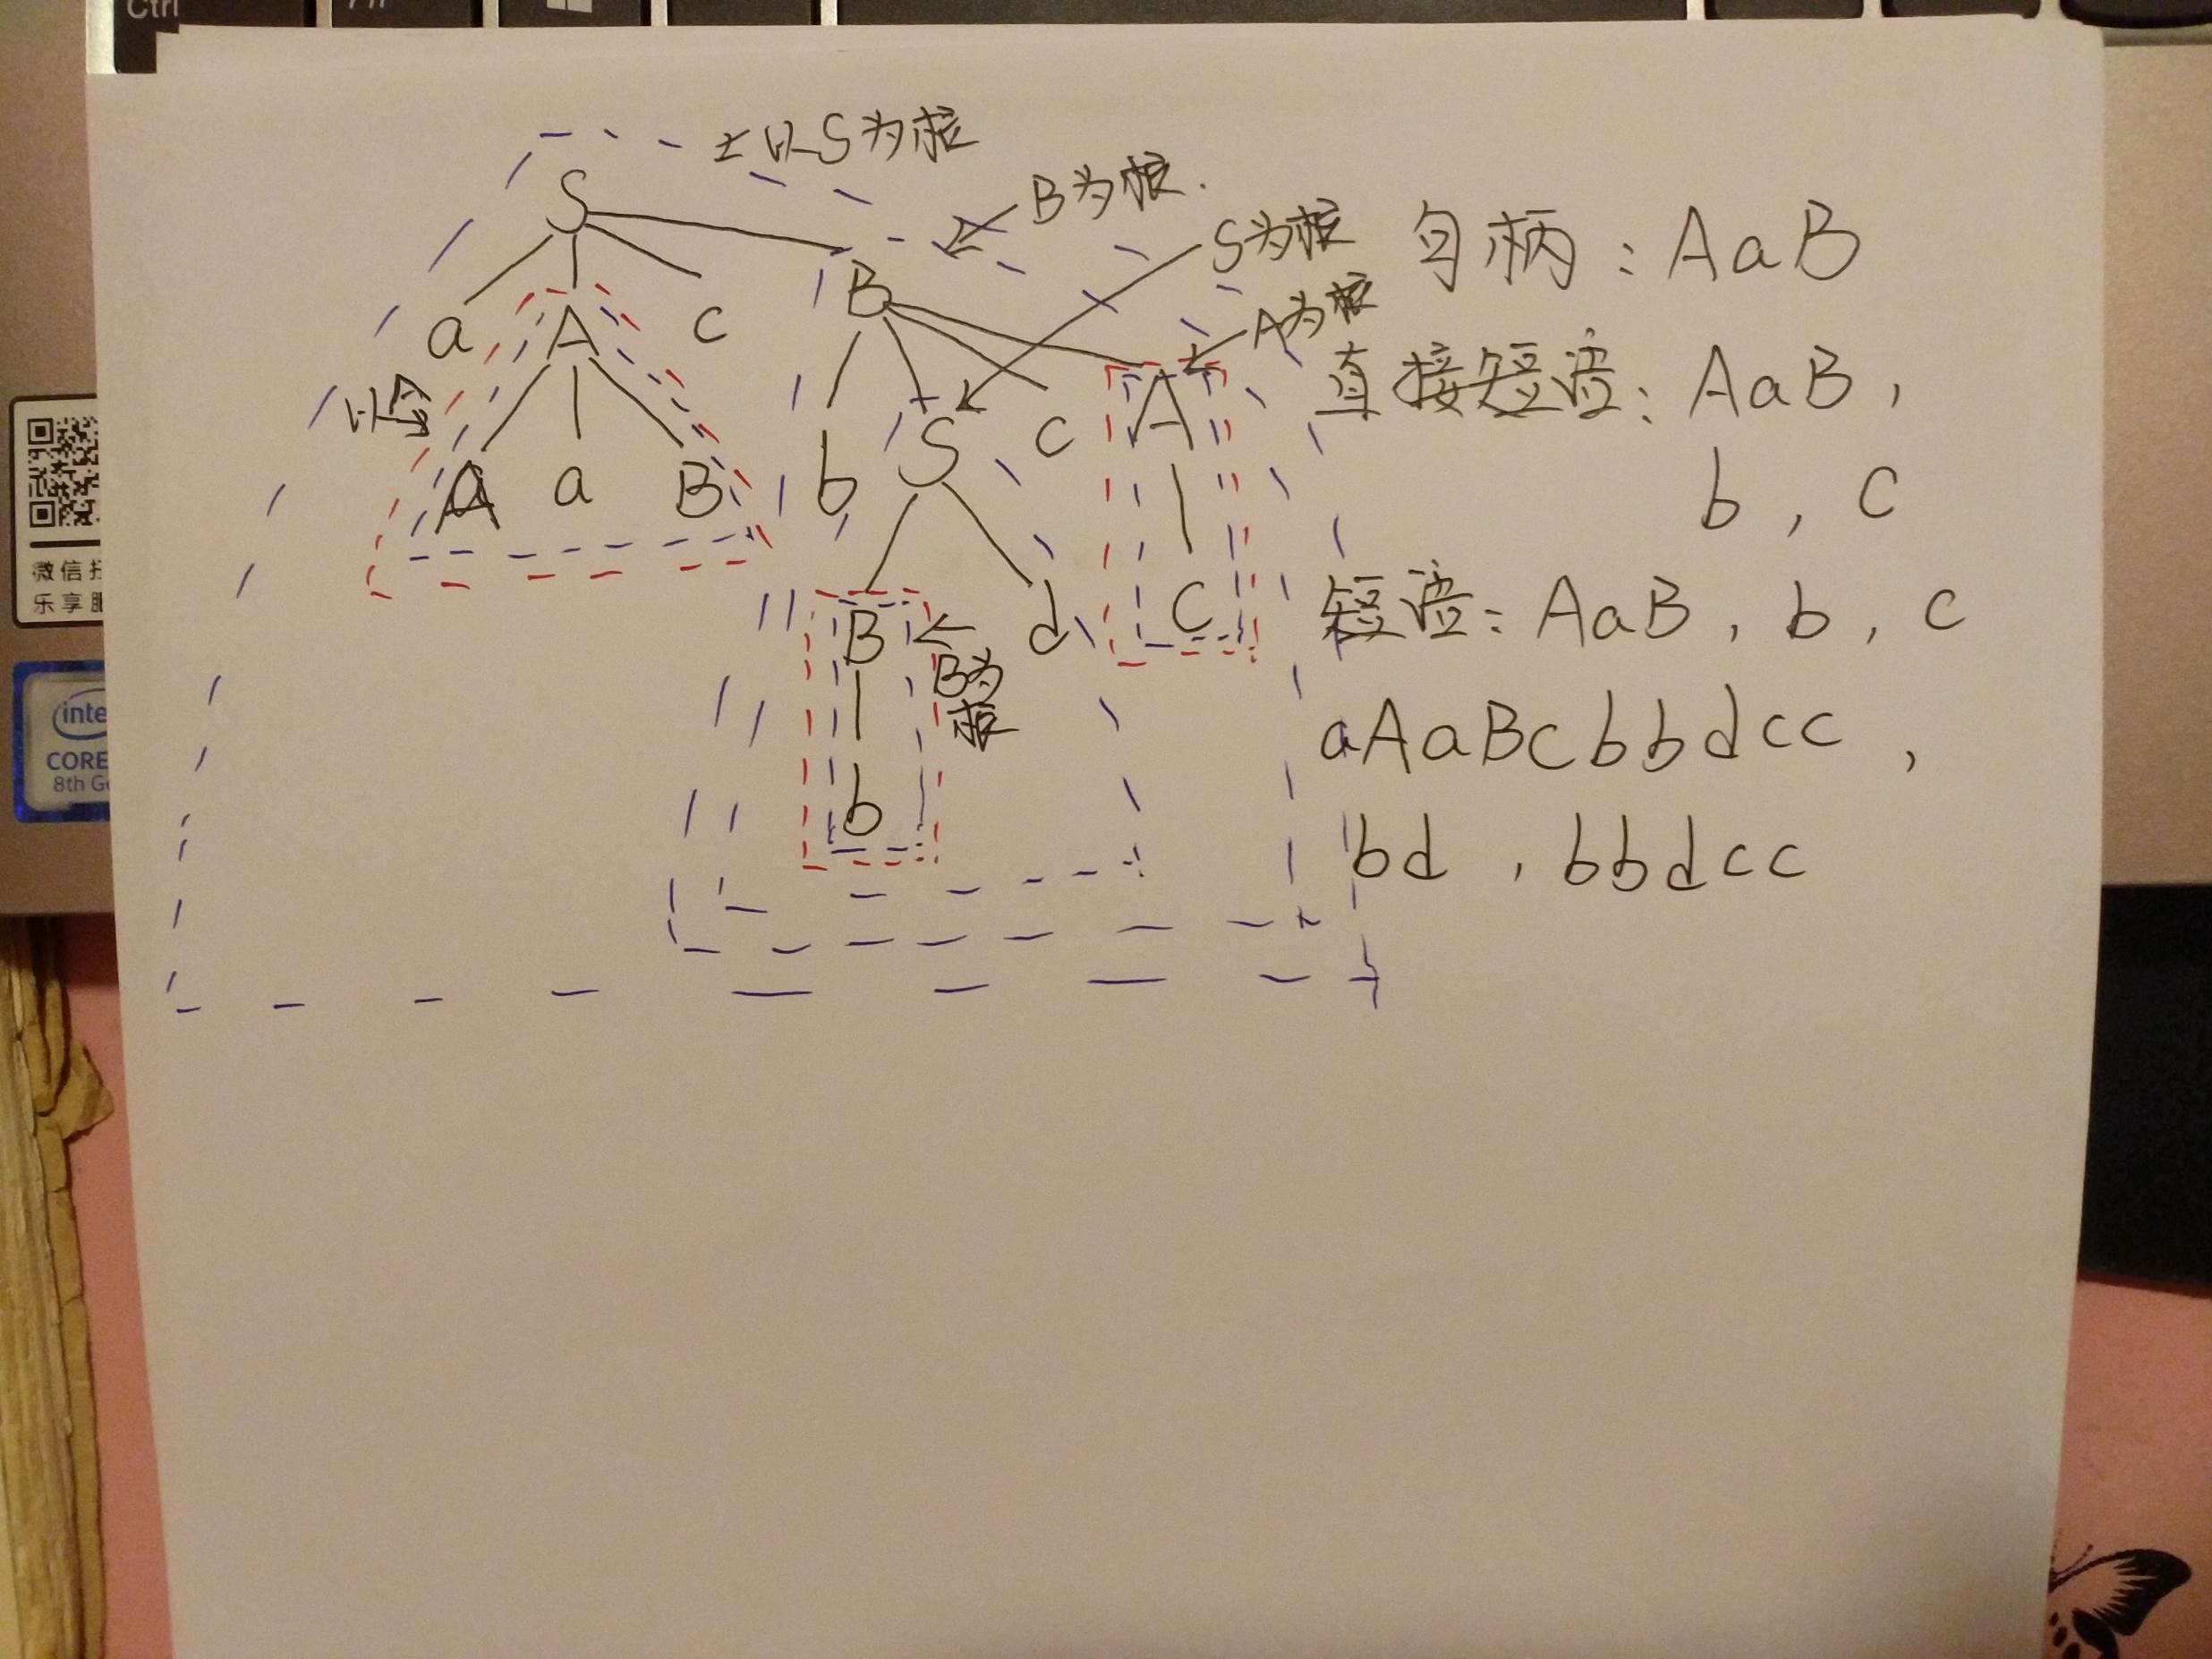 Ctrl
以S为根
B为根.
S为根
A为根
S
B
a A c
b S c A
A a B
B d C
B为
根
b
句柄：AaB
直接短语：AaB，
b，c
短语：AaB，b，c
aAaBcbbdcc，
bd，bbdcc
微信扫
乐享服
inte
CORE
8th Ge